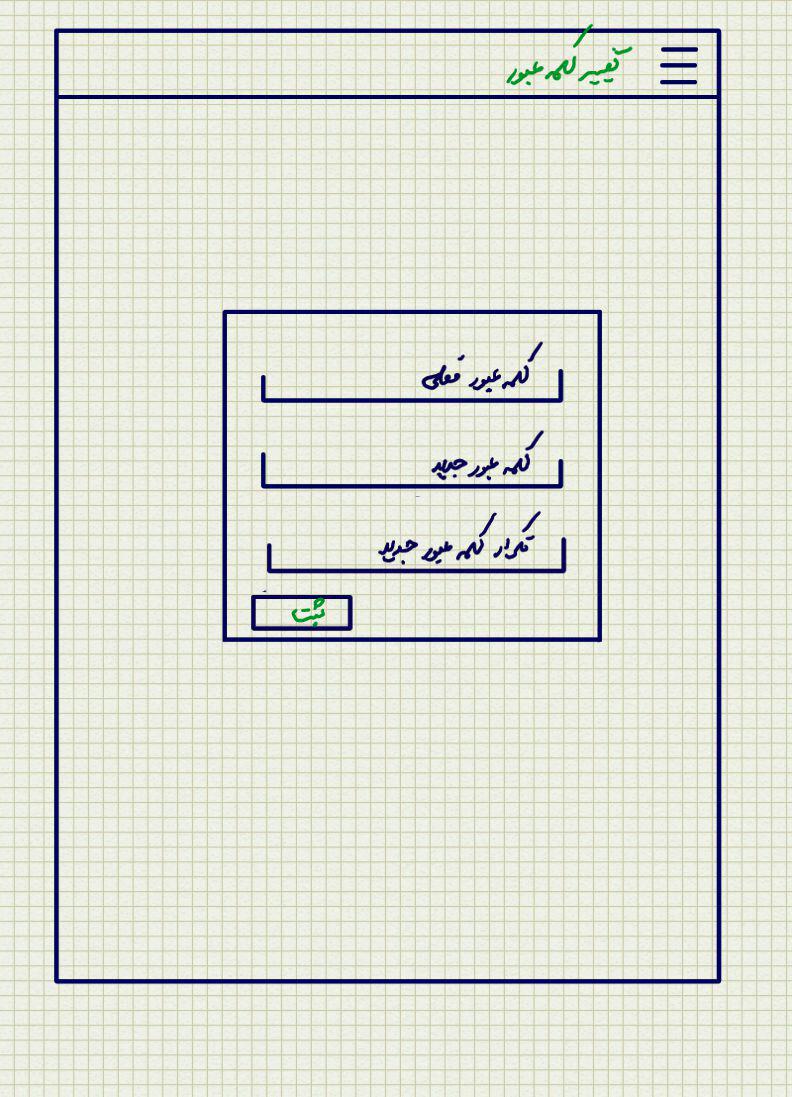 تغییر کلمه عبور
کلمه عبور فعلی
کلمه عبور جدید
تکرار کلمه عبور جدید
ثبت